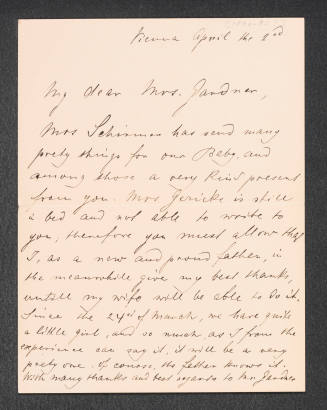 Vienna April the 2nd
My dear Mrs. Gardner,
Mrs Schirmer has send many
pretty things for our Baby, and
among those a very kind present
from you. Mrs Gericke is still
a bed and not able to write to
you, therefore you must allow that
I, as a new and proud father, in
the meanwhile give my best thanks,
untill my wife will be able to do it.
Since the 24st of March, we have quite
a little girl, and so much as I from the
experience can say it, it will be a very
pretty one. Of course, the father knows it.
With many thanks and best regards to Mr. Gardner